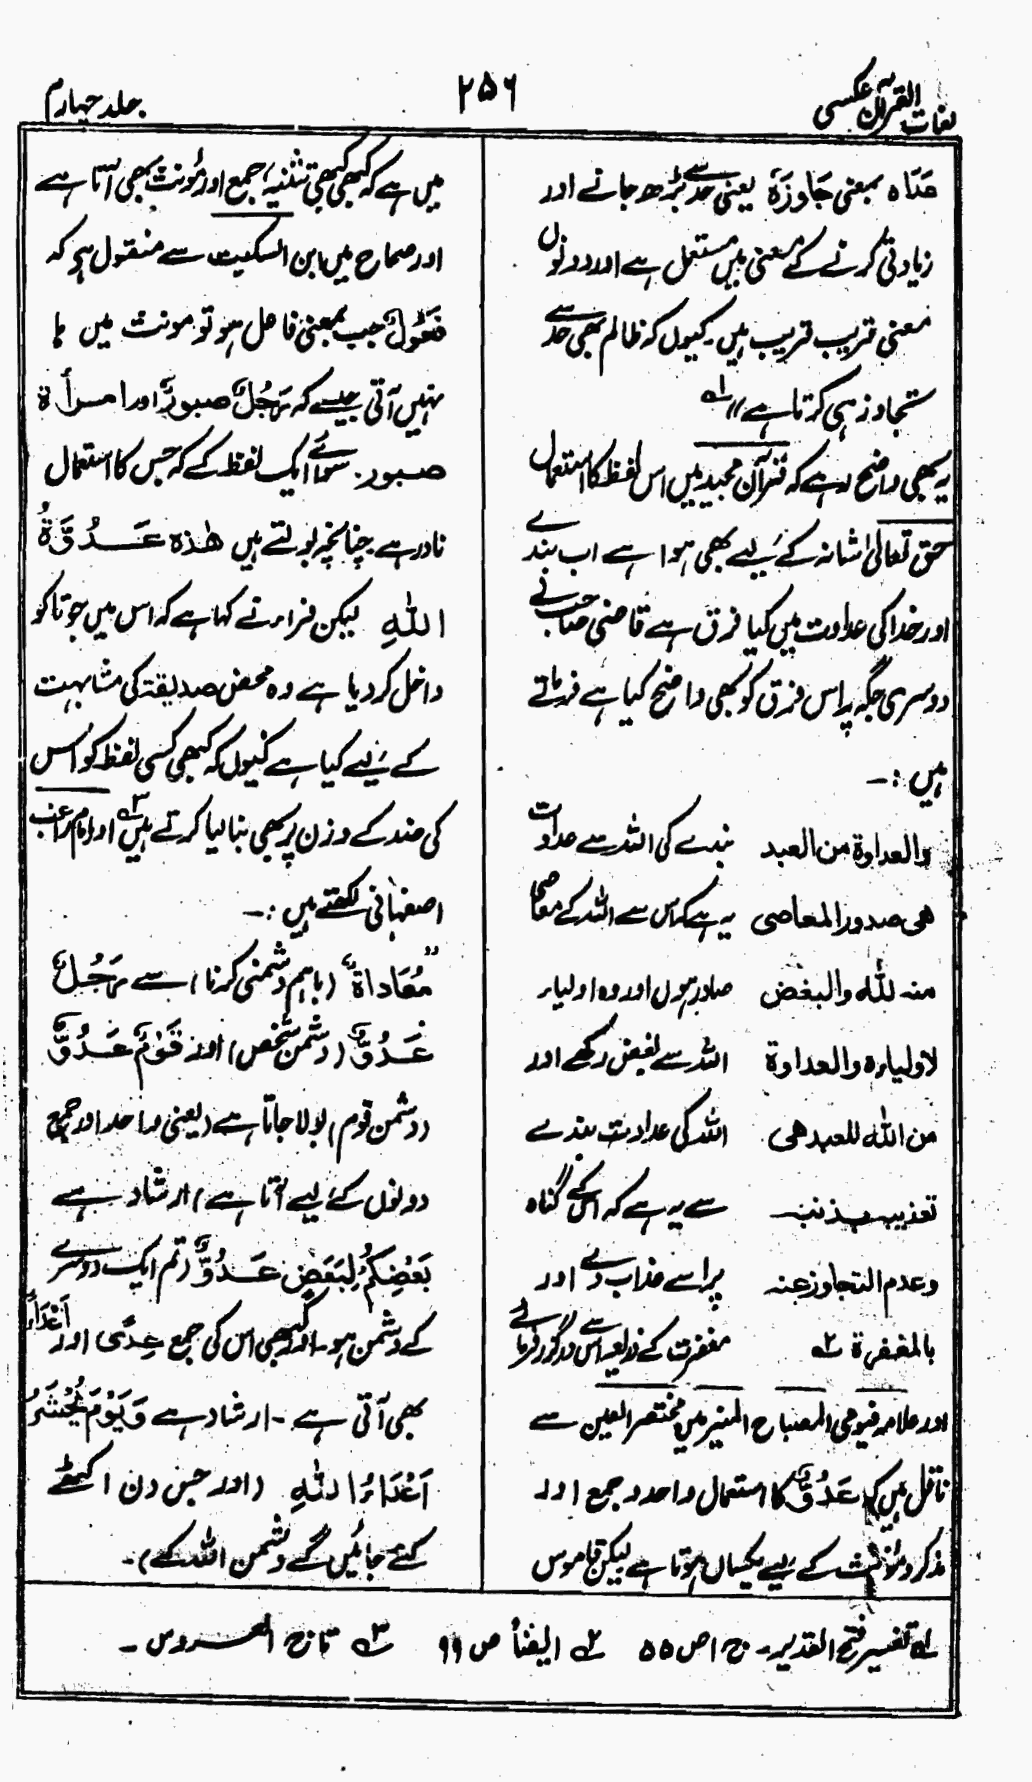 لغات القرآن عکسی
۲۵۶
جلد چہارم
عَدَاہ بمعنی جَاوَزَہٗ یعنی حد سے بڑھ جانے اور
زیادتی کرنے کے معنی میں مستعمل ہے اور دونوں
معنی قریب قریب ہیں۔ کیوں کہ ظالم بھی حد سے
تجاوز ہی کرتا ہے // لہ
یہ بھی واضح رہے کہ قرآن مجید میں اس لفظ کا استعمال
حق تعالیٰ شانہ کے لیے بھی ہوا ہے اب بندے
اور خدا کی عداوت میں کیا فرق ہے قاضی صاحب نے
دوسری جگہ پر اس فرق کو بھی واضح کیا ہے فرماتے
ہیں :۔
والعداوۃ من العبد بندے کی اللہ سے عداوت
ھی صدور المعاصی یہ ہے کہ اس سے اللہ کے معاصی
منہ للہ والبغض صادر ہوں اور وہ اولیاء
لاولیاءہ والعداوۃ اللہ سے بغض رکھے اور
من اللہ للعبد ھی اللہ کی عداوت بندے
تعذیبہ بذنبہ سے یہ ہے کہ اس کے گناہ
وعدم التجاوز عنہ پر اسے عذاب دے اور
بالمغفرۃ ۲ہ مغفرت کے ذریعہ اس سے درگزر نہ فرمائے //
اور علامہ فیومی المصباح المنیر میں مختصر العین سے
ناقل ہیں کہ عَدُوٌّ کا استعمال واحد و جمع اور
مذکر و مؤنث کے لیے یکساں ہوتا ہے لیکن قاموس
میں ہے کہ کبھی کبھی تثنیہ، جمع اور مؤنث بھی آتا ہے
اور صحاح میں ابن السکیت سے منقول ہے کہ
فَعُوْلٌ جب بمعنی فاعل ہو تو مونث میں ہا
نہیں آتی جیسے کہ رَجُلٌ صبورٌ اور امرأۃ
صبور۔ سوائے ایک لفظ کے کہ جس کا استعمال
نادر ہے چنانچہ بولتے ہیں ھٰذہ عَدُوَّۃُ
اللّٰہِ لیکن فراء نے کہا ہے کہ اس میں جو تا کو
داخل کر دیا ہے وہ محض صدیقۃ کی مشابہت
کے لیے کیا ہے کیوں کہ کبھی کسی لفظ کو اس
کی ضد کے وزن پر بھی بنا لیا کرتے ہیں ۳ہ اور امام راغب
اصفہانی لکھتے ہیں :۔
" مُعَاداۃٌ (باہم دشمنی کرنا) سے رَجُلٌ
عَدُوٌّ (دشمن شخص) اور قَوْمٌ عَدُوٌّ
(دشمن قوم) بولا جاتا ہے (یعنی واحد اور جمع
دونوں کے لیے آتا ہے) ارشاد ہے
بَعْضُکُمْ لِبَعْضٍ عَدُوٌّ (تم ایک دوسرے
کے دشمن ہو۔ اور کبھی اس کی جمع عِدًی اور اَعْدَاءٌ
بھی آتی ہے۔ ارشاد ہے وَیَوْمَ یُحْشَرُ
اَعْدَاءُ اللّٰہِ (اور جس دن اکٹھے
کئے جائیں گے دشمن اللہ کے)۔
لہ تفسیر فتح القدیر۔ ج ۱ ص ۵۵ ۲ہ ایضاً ص ۹۹ ۳ہ تاج العروس۔